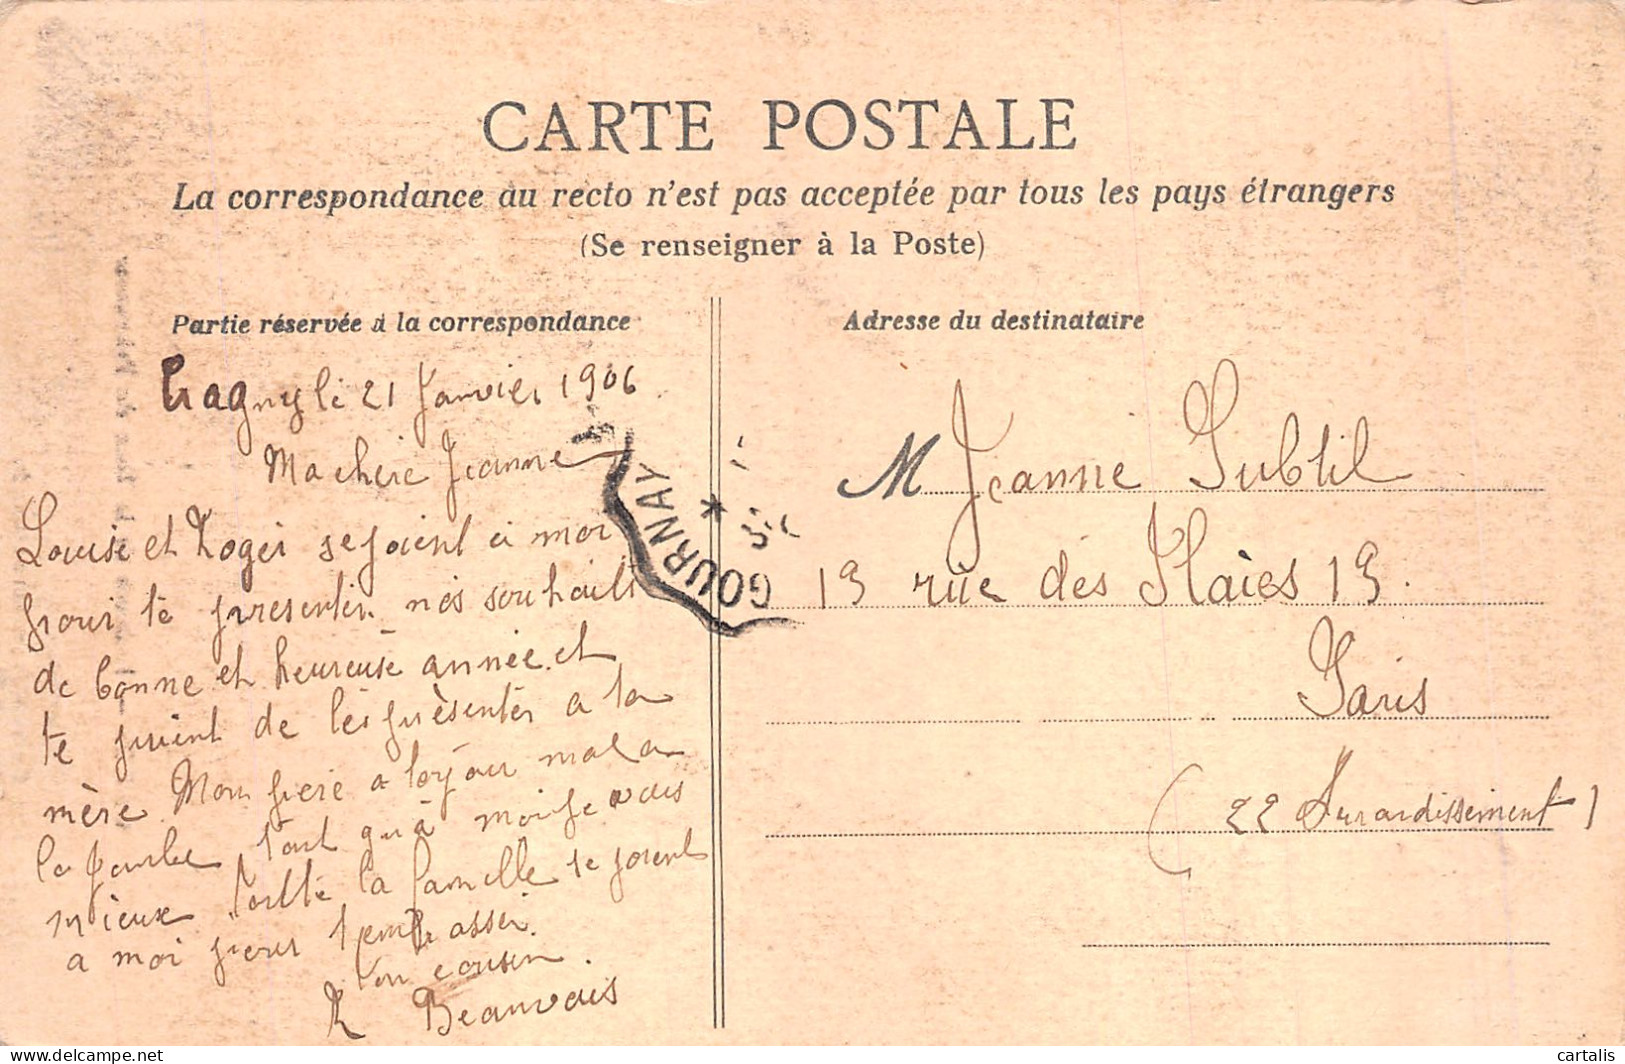 CARTE POSTALE
La correspondance au recto n'est pas acceptée par tous les pays étrangers
(Se renseigner à la Poste)
Partie réservée à la correspondance
le 21 Janvier 1906
Ma chere Jeanne
Louise et Roger se joient a moi
pour te presenter nos souhaits
de bonne et heureuse année et
te prient de les présenter a ta
mère Mon frere a toujour mal a
la jambe tant qu'à moi je vais
mieux toutte la famille se joient
a moi pour t'embrasser
Ton cousin.
R Beauvais
GOURNAY *
Adresse du destinataire
M Jeanne Subtil
19 rue des Haies 19.
Paris
(22 Arrardissement)
cartalis